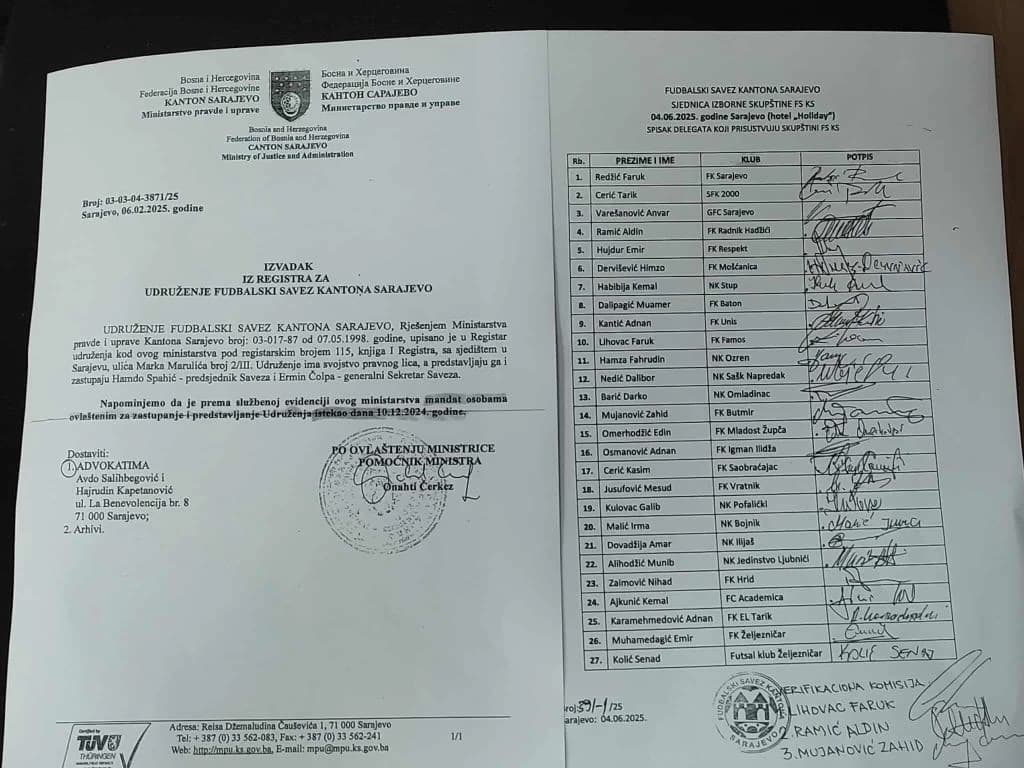 Bosna i Hercegovina
Federacija Bosne i Hercegovine
KANTON SARAJEVO
Ministarstvo pravde i uprave
Босна и Херцеговина
Федерација Босне и Херцеговине
КАНТОН САРАЈЕВО
Министарство правде и управе
Bosnia and Herzegovina
Federation of Bosnia and Herzegovina
CANTON SARAJEVO
Ministry of Justice and Administration
Broj: 03-03-04-3871/25
Sarajevo, 06.02.2025. godine
IZVADAK
IZ REGISTRA ZA
UDRUŽENJE FUDBALSKI SAVEZ KANTONA SARAJEVO
UDRUŽENJE FUDBALSKI SAVEZ KANTONA SARAJEVO, Rješenjem Ministarstva
pravde i uprave Kantona Sarajevo broj: 03-017-87 od 07.05.1998. godine, upisano je u Registar
udruženja kod ovog ministarstva pod registarskim brojem 115, knjiga I Registra, sa sjedištem u
Sarajevu, ulica Marka Marulića broj 2/III. Udruženje ima svojstvo pravnog lica, a predstavljaju ga i
zastupaju Hamdo Spahić - predsjednik Saveza i Ermin Čolpa - generalni Sekretar Saveza.
Napominjemo da je prema službenoj evidenciji ovog ministarstva mandat osobama
ovlaštenim za zastupanje i predstavljanje Udruženja istekao dana 10.12.2024. godine.
Dostaviti:
1. ADVOKATIMA
Avdo Salihbegović i
Hajrudin Kapetanović
ul. La Benevolencija br. 8
71 000 Sarajevo;
2. Arhivi.
PO OVLAŠTENJU MINISTRICE
POMOĆNIK MINISTRA
Onahti Čerkez
Certified by
TÜV
THÜRINGEN
Adresa: Reisa Džemaludina Čauševića 1, 71 000 Sarajevo
Tel: + 387 (0) 33 562-083, Fax: + 387 (0) 33 562-241
Web: http://mpu.ks.gov.ba, E-mail: mpu@mpu.ks.gov.ba
1/1
FUDBALSKI SAVEZ KANTONA SARAJEVO
SJEDNICA IZBORNE SKUPŠTINE FS KS
04.06.2025. godine Sarajevo (hotel „Holiday")
SPISAK DELEGATA KOJI PRISUSTVUJU SKUPŠTINI FS KS
Rb. PREZIME I IME KLUB POTPIS
1. Redžić Faruk FK Sarajevo
2. Cerić Tarik SFK 2000
3. Varešanović Anvar GFC Sarajevo
4. Ramić Aldin FK Radnik Hadžići
5. Hujdur Emir FK Respekt
6. Dervišević Himzo FK Mošćanica
7. Habibija Kemal NK Stup
8. Dalipagić Muamer FK Baton
9. Kantić Adnan FK Unis
10. Lihovac Faruk FK Famos
11. Hamza Fahrudin NK Ozren
12. Nedić Dalibor NK Sašk Napredak
13. Barić Darko NK Omladinac
14. Mujanović Zahid FK Butmir
15. Omerhodžić Edin FK Mladost Župča
16. Osmanović Adnan FK Igman Ilidža
17. Cerić Kasim FK Saobraćajac
18. Jusufović Mesud FK Vratnik
19. Kulovac Galib NK Pofalićki
20. Malić Irma NK Bojnik
21. Dovadžija Amar NK Ilijaš
22. Alihodžić Munib NK Jedinstvo Ljubnići
23. Zaimović Nihad FK Hrid
24. Ajkunić Kemal FC Academica
25. Karamehmedović Adnan FK EL Tarik
26. Muhamedagić Emir FK Željezničar
27. Kolić Senad Futsal klub Željezničar KOLIĆ SENAD
roj: 59-1/25
arajevo: 04.06.2025.
FUDBALSKI SAVEZ KANTONA
SARAJEVO
VERIFIKACIONA KOMISIJA
LIHOVAC FARUK
2. RAMIĆ ALDIN
3. MUJANOVIĆ ZAHID